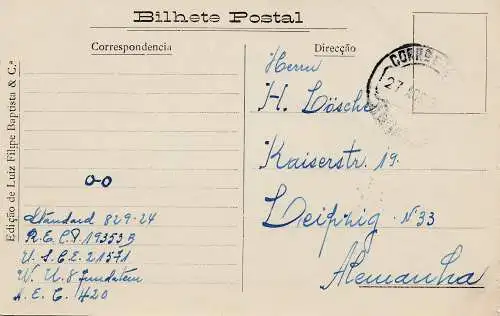 Bilhete Postal
Correspondencia
Direcção
Edição de Luiz Filipe Baptista & C.ª
CORREIO
27 AGO
Herrn
H. Lösche
Kaiserstr. 19.
Leipzig N 33
Alemanha
o-o
Standard 829-24
R.E.C.P. 19353 B
U.S.C.E. 21571
W. U. 8
A.E.C. 420